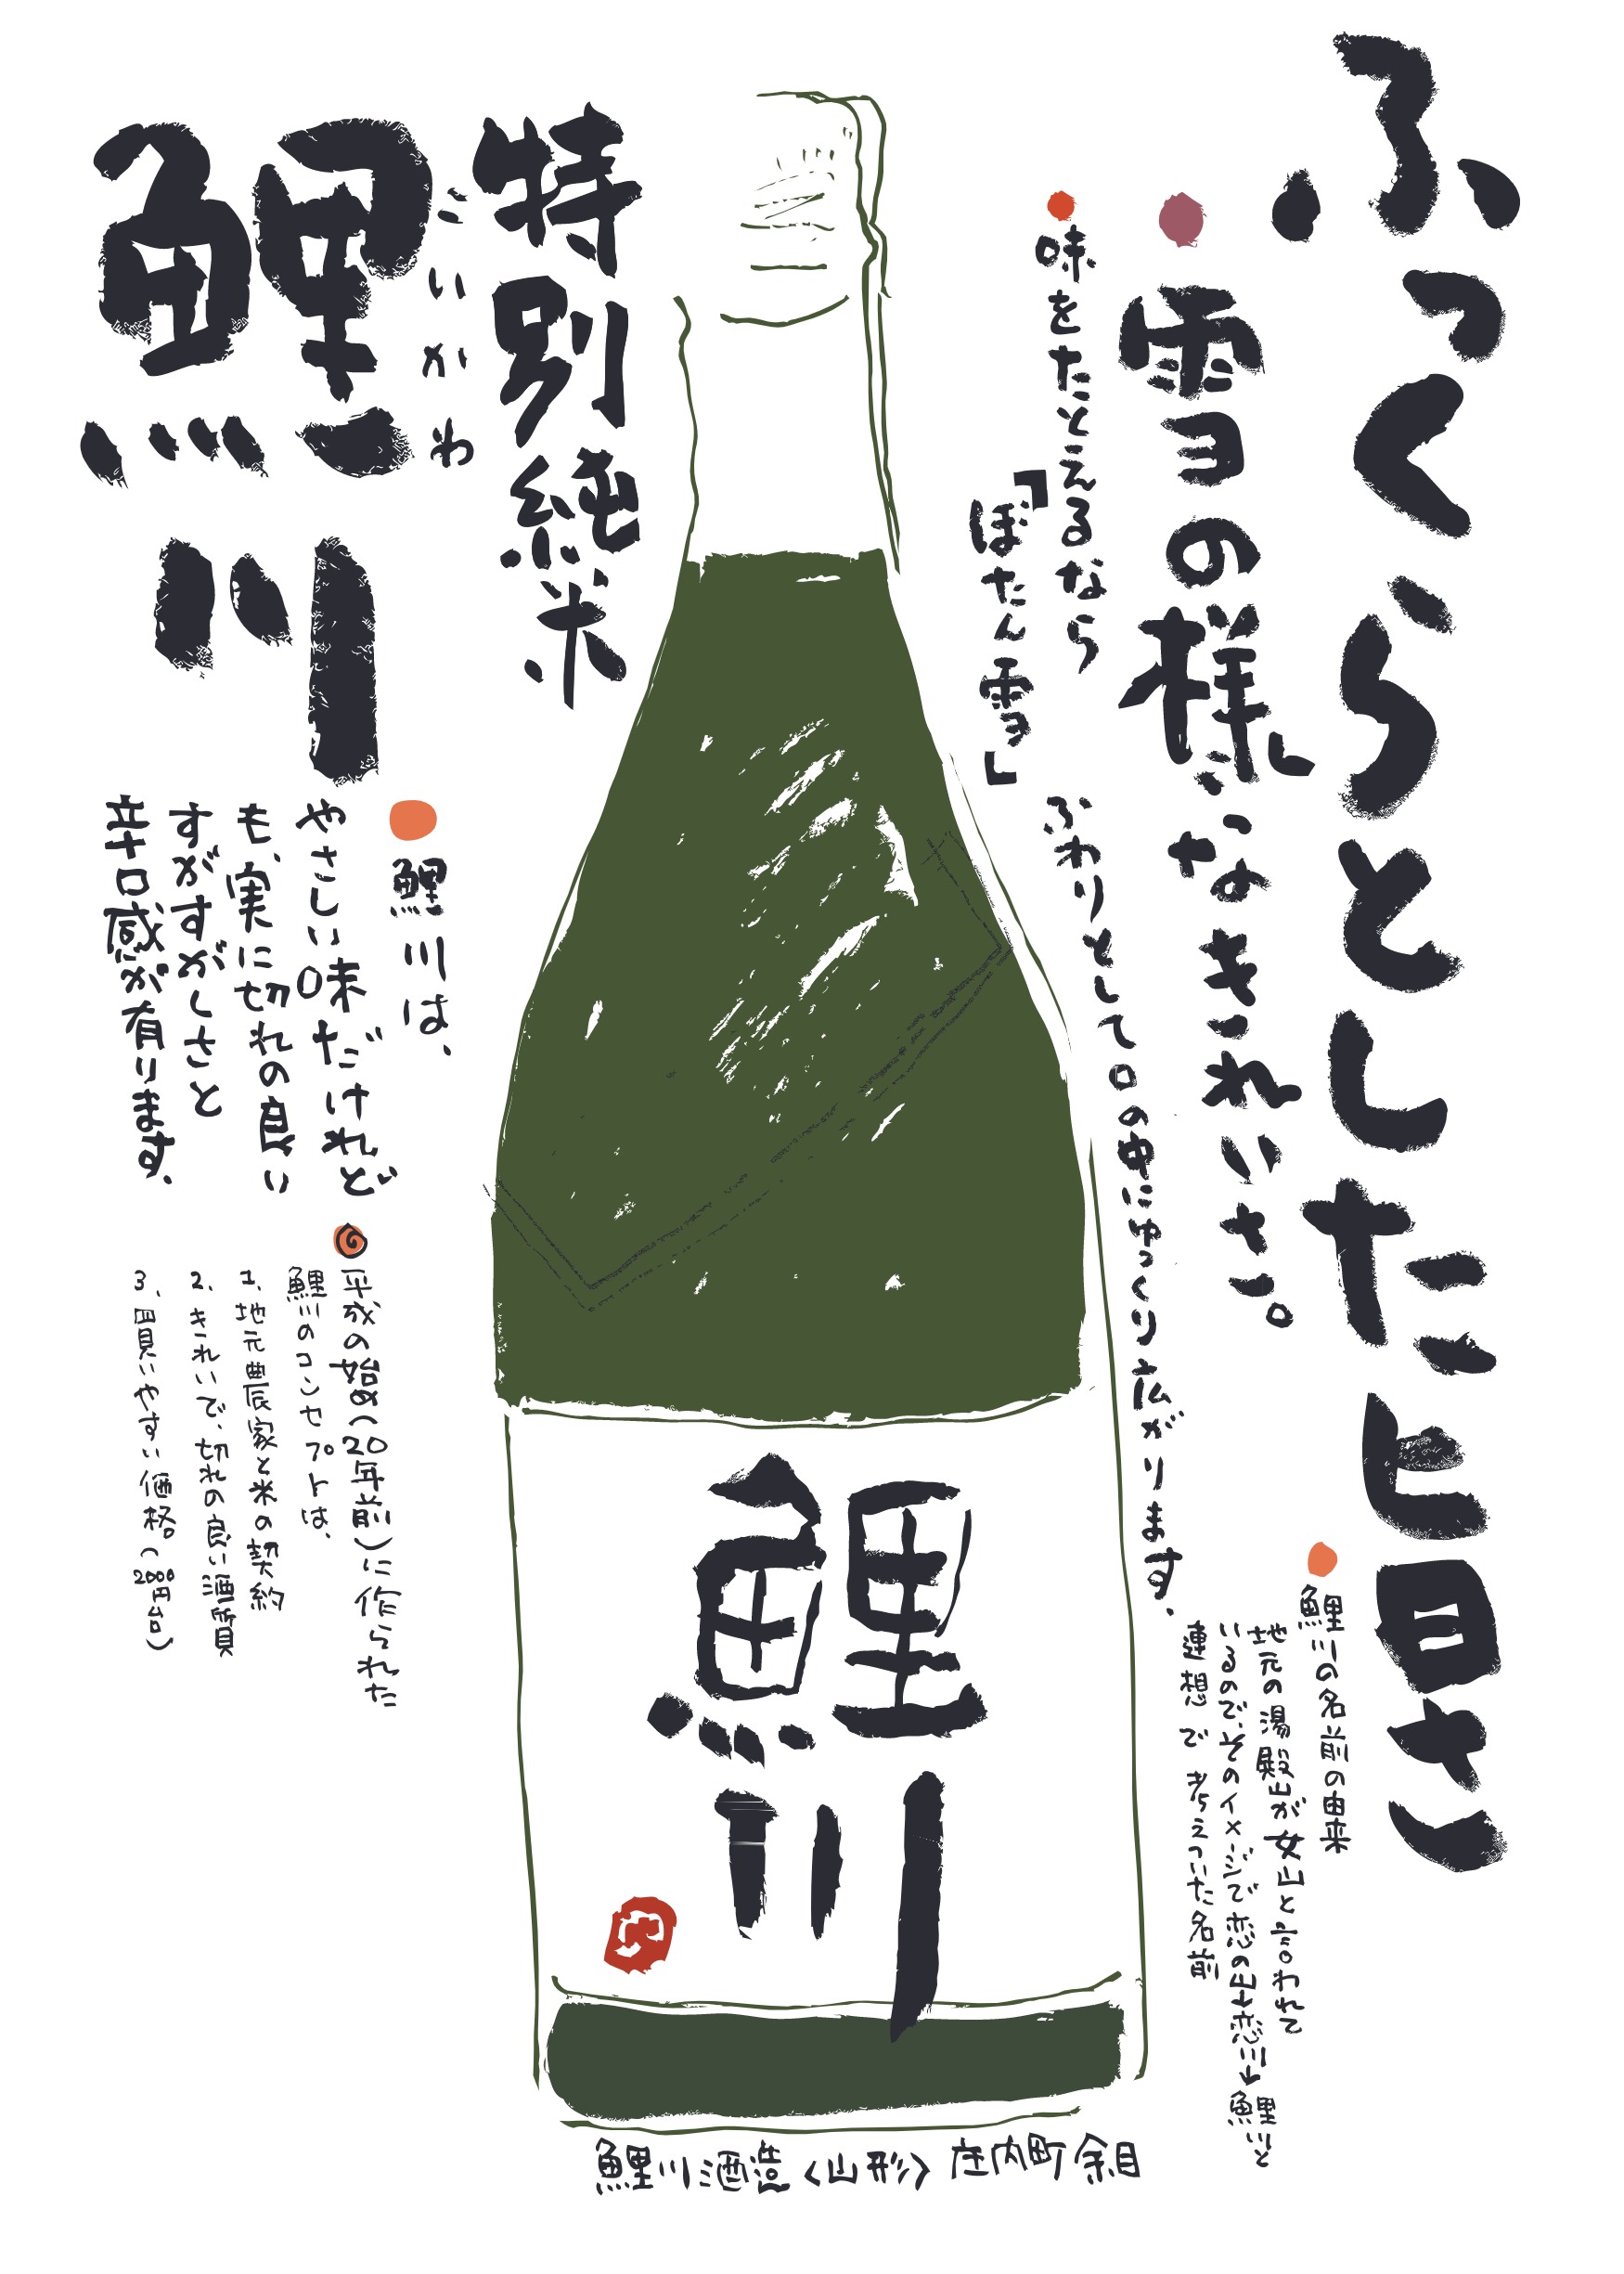 ふっくらとした旨さ、
雪の様なきれいさ。
味をたとえるなら
「ぼたん雪」
ふわりとして口の中にゆっくり広がります。
鯉川の名前の由来
地元の湯殿山が女山と言われて
いるので、そのイメージで恋の山→恋川→鯉川と
連想で考えついた名前
特別純米
こいかわ
鯉川
鯉川は、
やさしい味だけれど
も、実に切れの良い
すがすがしさと
辛口感が有ります。
平成の始め(20年前)に作られた
鯉川のコンセプトは、
1、地元農家と米の契約
2、きれいで、切れの良い酒質
3、買いやすい価格。(2000円台)
鯉川
鯉川酒造〈山形〉庄内町余目